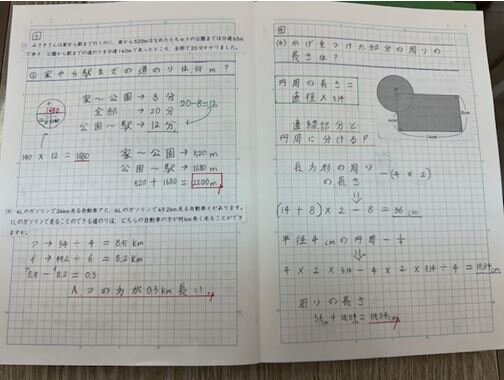 (1) みさきさんは家から駅まで行くのに、家から520mはなれたとちゅうの公園までは分速65m
で歩き、公園から駅までの道のりを分速140mで走ったところ、全部で20分かかりました。
② 家から駅までの道のりは、何m?
家〜公園→8分
20-8=12
全部→20分
公園〜駅→12分
1680
140 × 12 = 1680
家〜公園→520m
公園〜駅→1680m
520 + 1680 = 2200m
4Lのガソリンで34km走る自動車アと、6Lのガソリンで49.2km走る自動車イがあります。
1Lのガソリンで走ることのできる道のりは、どちらの自動車の方が何km長く走ることができ
ますか。
ア→34÷4=8.5km
イ→49.2÷6=8.2km
8.5-8.2=0.3
A.アの方が0.3km長い。
(4) かげをつけた部分の周りの
長さは?
円周の長さ=
直径×3.14
直線部分と
円周に分ける
8cm
14cm
長方形の周り
の長さ
-(4×2)
(14+8)×2-8=36cm
半径4cmの円周-¼
4×2×3.14-4×2×3.14÷4=18.84cm
周りの長さ